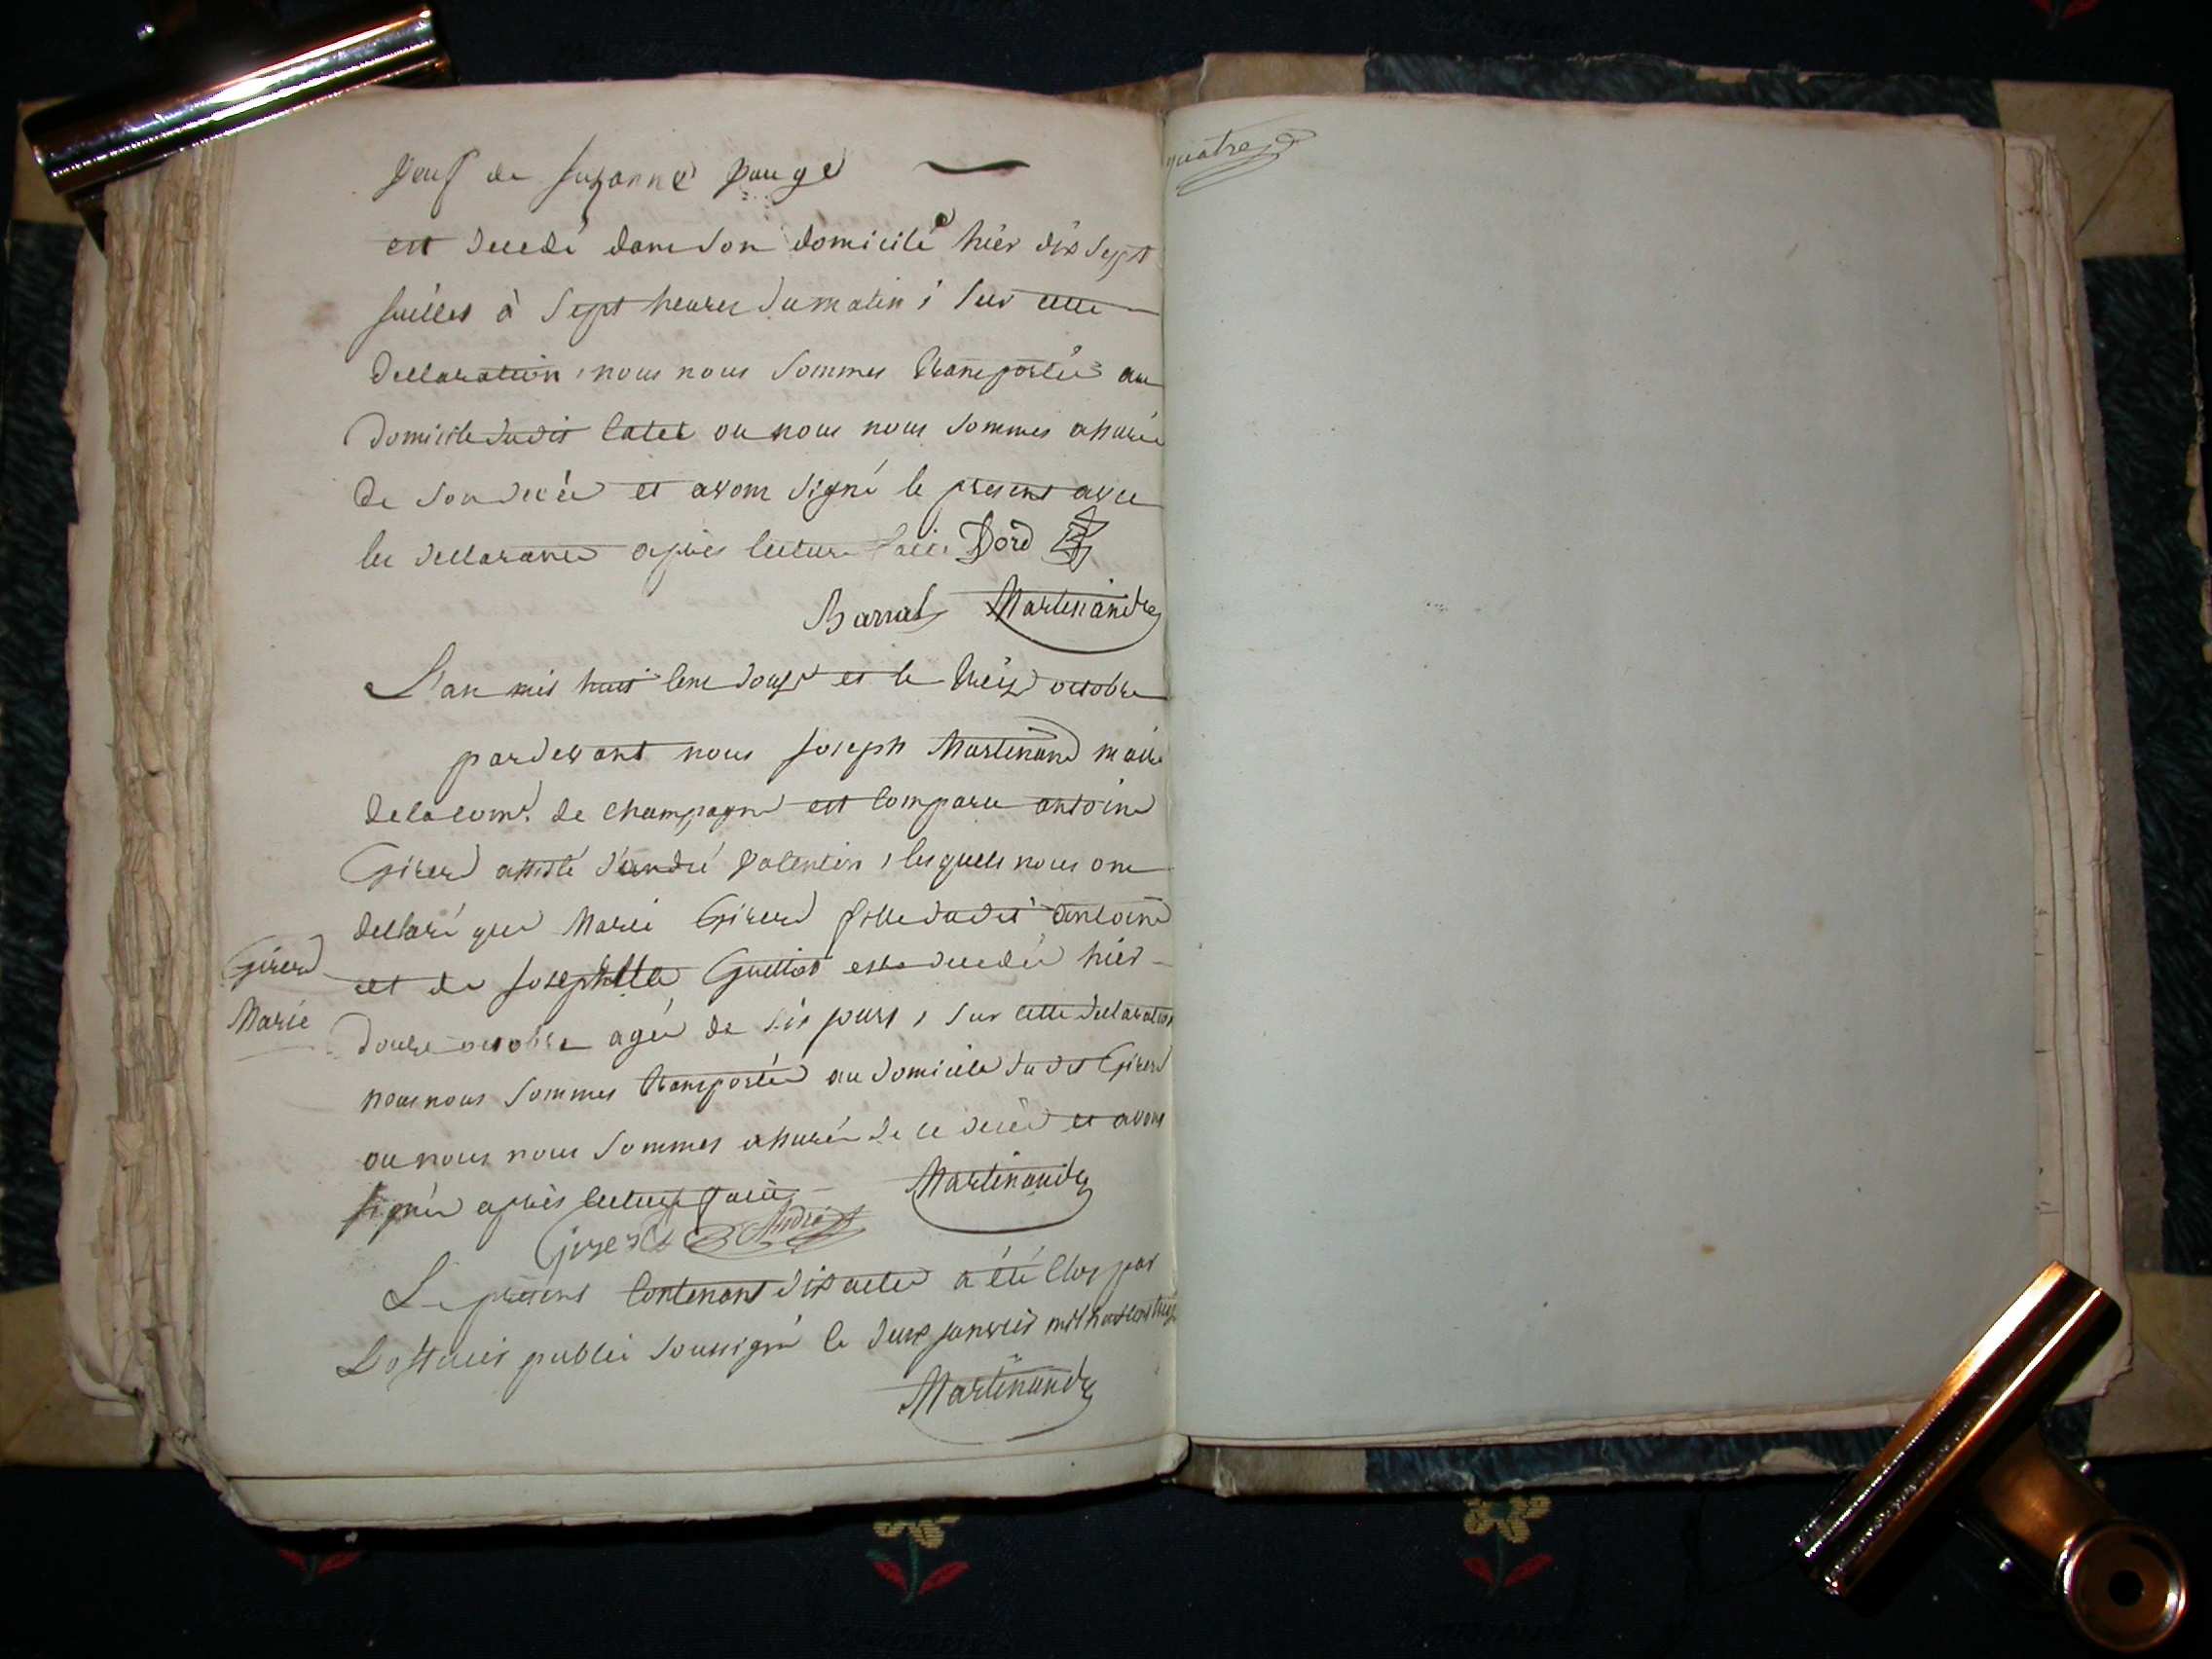 veuf de Suzanne
est decedé dans son domicile hier dix sept
juillet à sept heures du matin ; sur cette
declaration, nous nous sommes transportés au
domicile dudit ou nous nous sommes assurés
de son decès et avons signé le present avec
les declarants après lecture faite Dord
Barrat Martinand
L'an mil huit cent douze et le treize octobre
pardevant nous joseph Martinand maire
de la com.e de champagne est comparu antoine
Girerd assisté d'andré valentin, lesquels nous ont
declaré que Marie Girerd fille dudit antoine
et de josephtte Guillot est decedée hier
douze octobre agée de six jours, sur cette declaration
nous nous sommes transportés au domicile du dit Girerd
ou nous nous sommes assurés de ce decès et avons
signés après lecture faite Martinand
Girerd André
Le présent contenant dix actes a été clos par
L'officier public soussigné le deux janvier mil huit cent treize
Martinand
Girerd
Marie
quatre